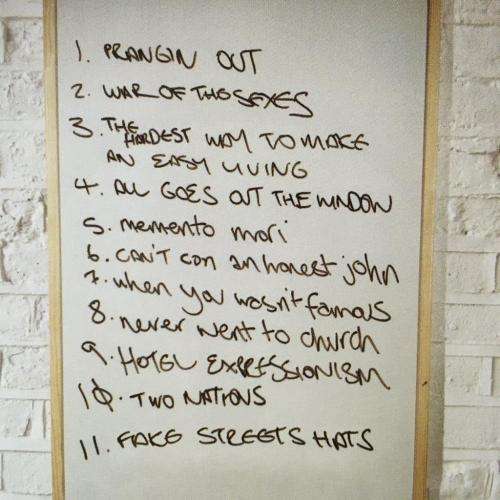 1. PRANGIN OUT
2. WAR OF THE SEXES
3. THE HARDEST WAY TO MAKE
AN EASY LIVING
4. ALL GOES OUT THE WINDOW
5. memento mori
6. CAN'T con an honest john
7. when you wasn't famous
8. never went to church
9. HOTEL EXPRESSIONISM
10. TWO NATIONS
11. FAKE STREETS HATS